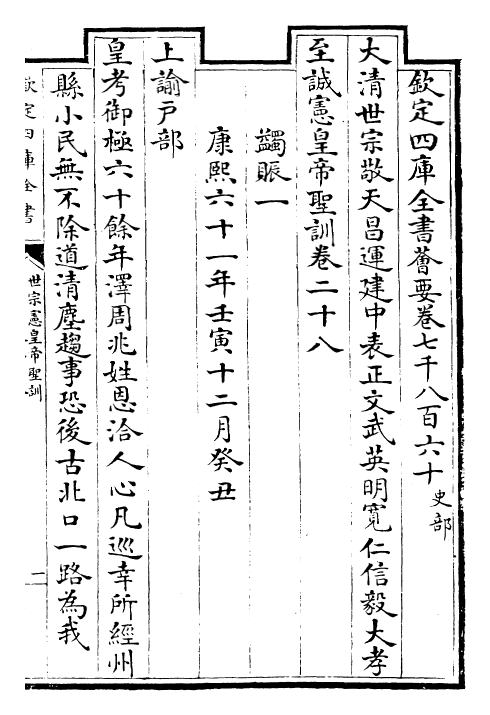 欽定四庫全書薈要卷七千八百六十 史部
大清世宗敬天昌運建中表正文武英明寬仁信毅大孝
至誠憲皇帝聖訓卷二十八
蠲賑一
康熙六十一年壬寅十二月癸丑
上諭戶部
皇考御極六十餘年澤周兆姓恩洽人心凡巡幸所經州
縣小民無不除道清塵趨事恐後古北口一路為我
欽定四庫全書
世宗憲皇帝聖訓
一